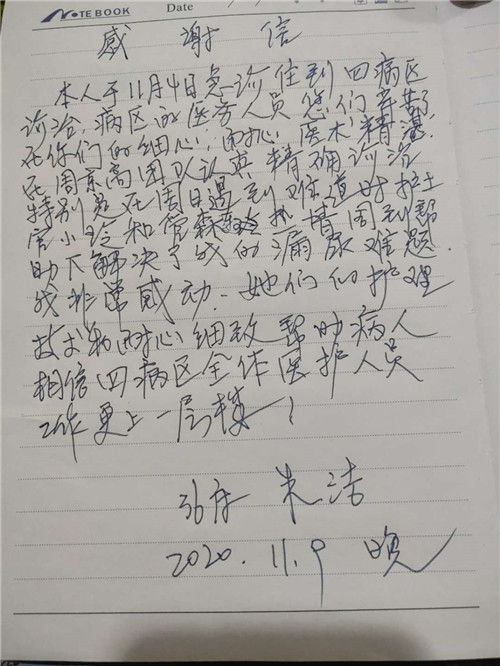 NOTE BOOK Date
感谢信
本人于11月4日急诊住到四病区
诊治,病区的医务人员您们辛苦了
在你们的细心,耐心,医术精湛.
在周京高团队认真精确诊治
特别是在周日遇到难道时护士
唐小玲和管森热情周到帮
助下解决了我的漏尿难题.
我非常感动.她们的护理
技术和耐心细致帮助病人
相信四病区全体医护人员
工作更上一层楼!
36床 朱洁
2020.11.9 晚